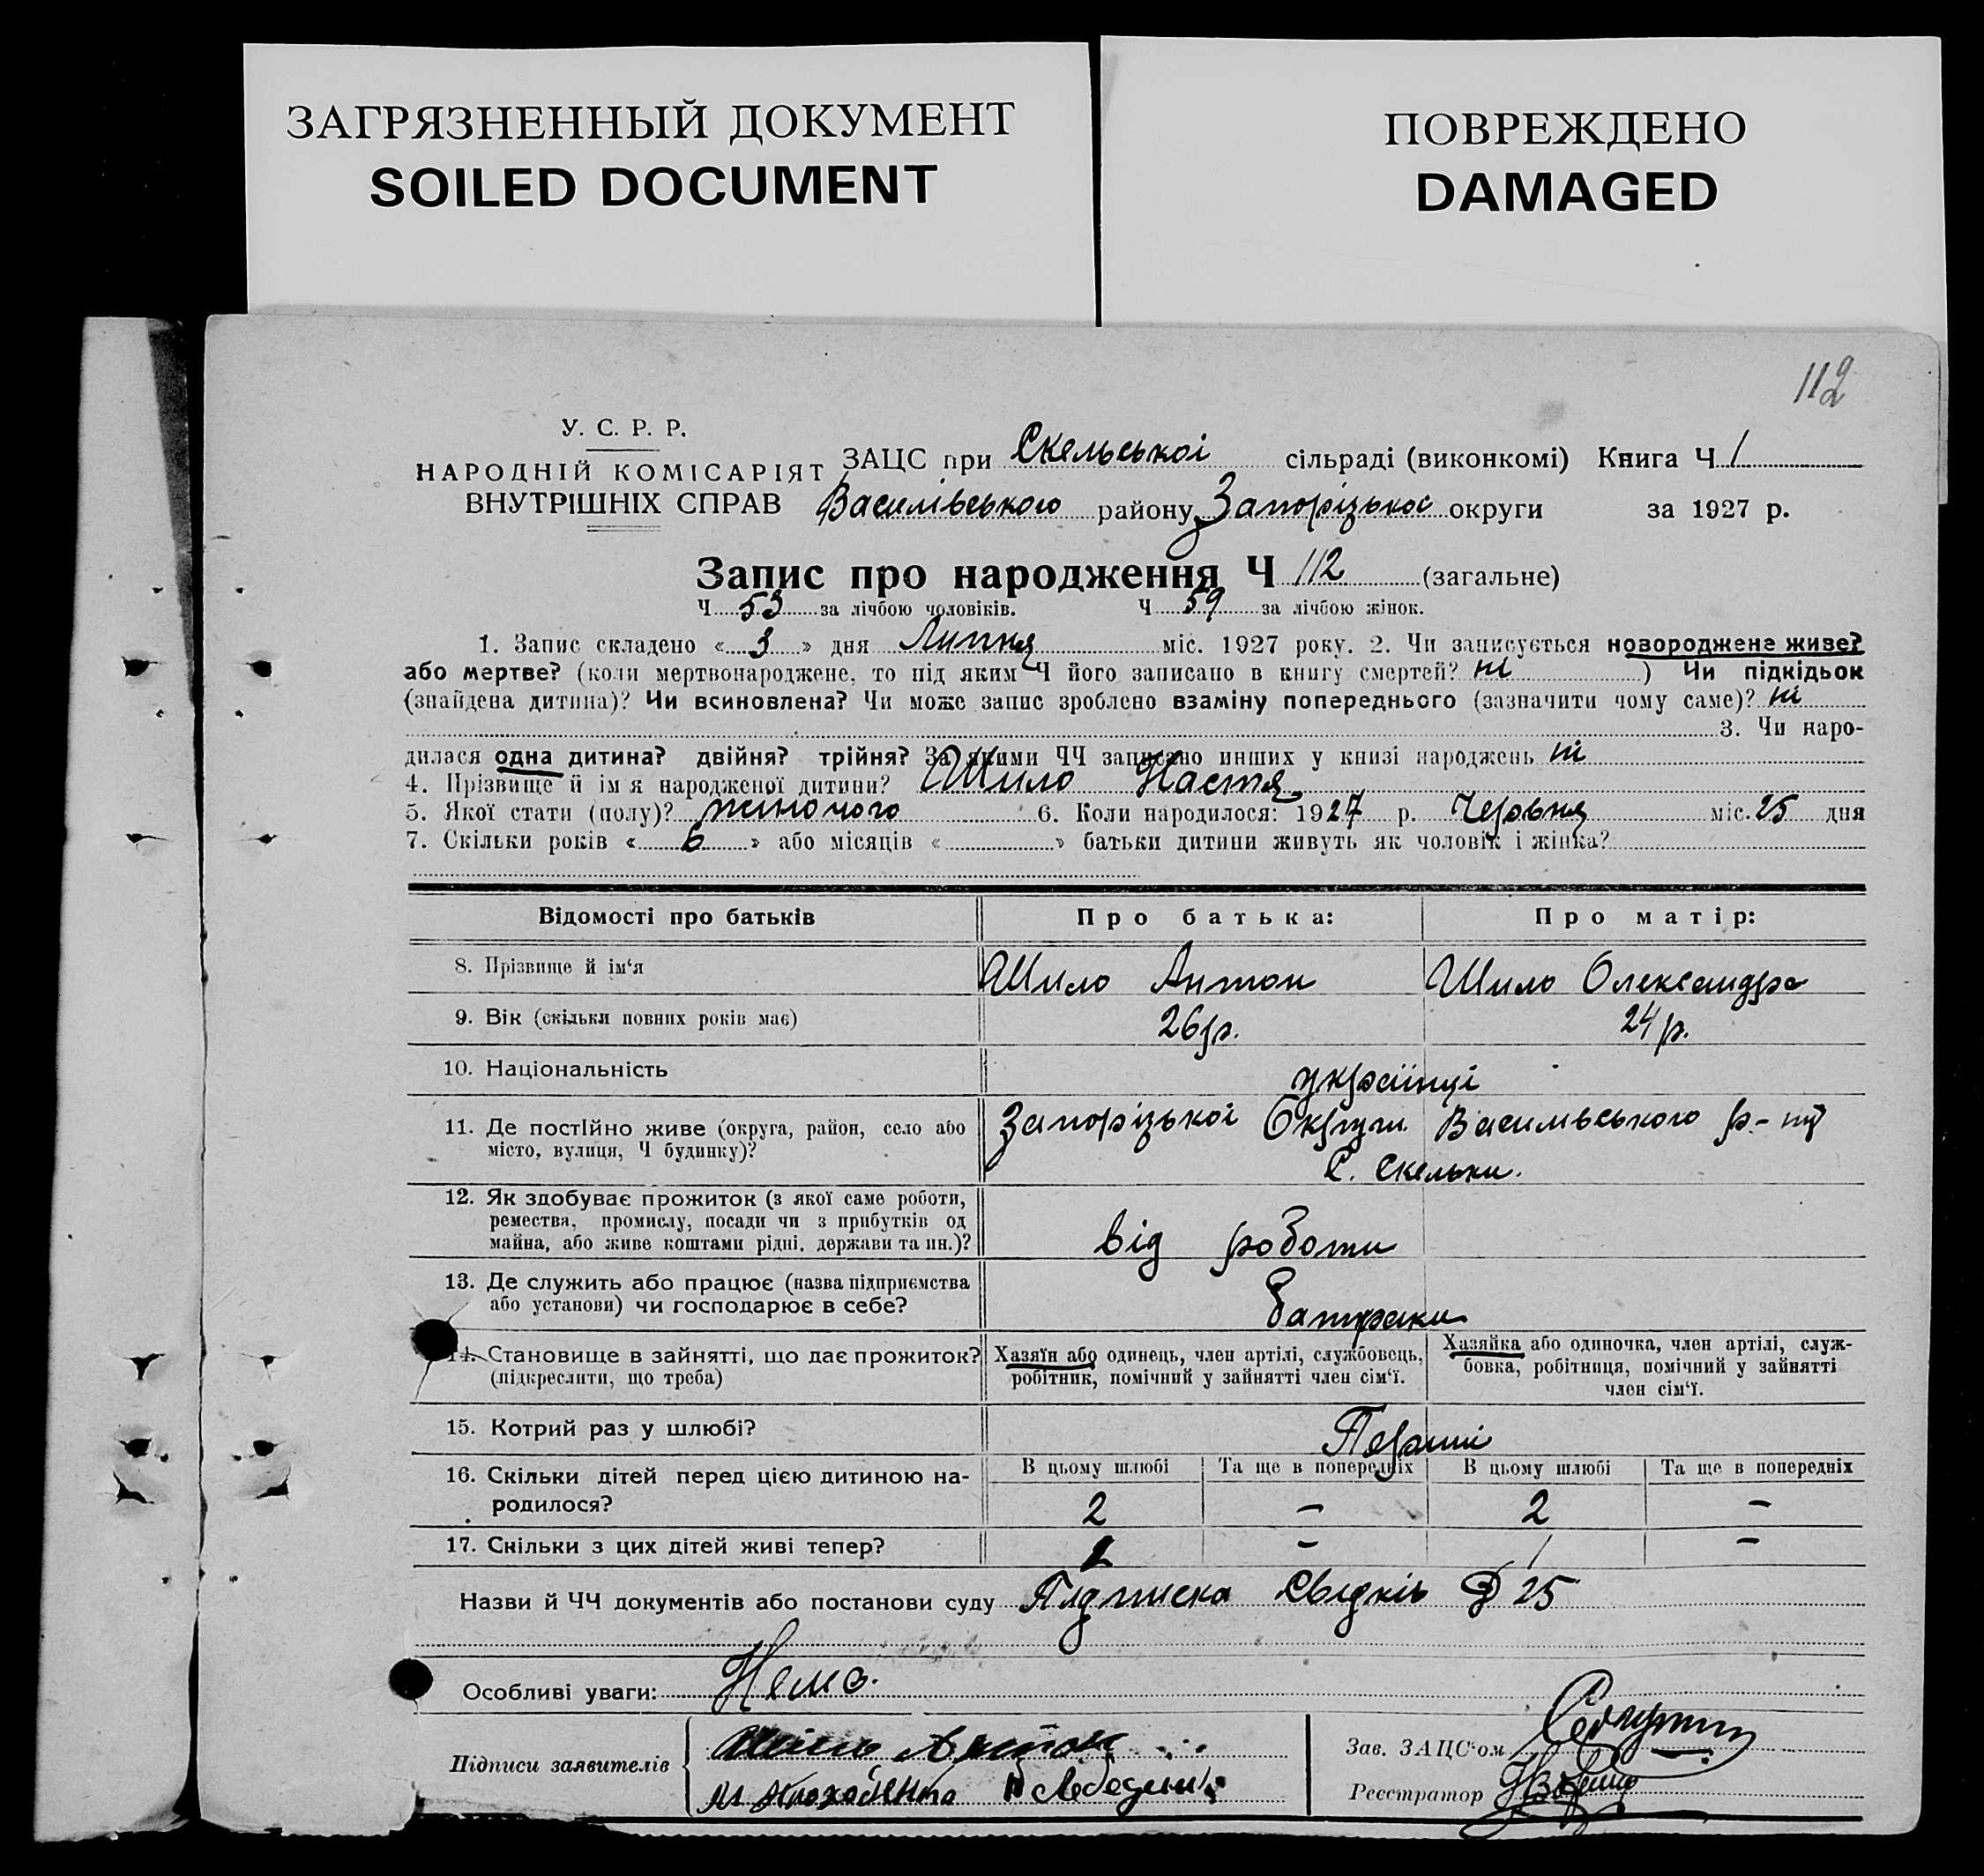 ЗАГРЯЗНЕННЫЙ ДОКУМЕНТ
SOILED DOCUMENT
ПОВРЕЖДЕНО
DAMAGED
112
У. С. Р. Р.
НАРОДНІЙ КОМІСАРІЯТ
ВНУТРІШНІХ СПРАВ
ЗАЦС при Скельської сільраді (виконкомі) Книга Ч 1
Василівського району Запорізької округи за 1927 р.
Запис про народження Ч 112 (загальне)
Ч 53 за лічбою чоловіків. Ч 59 за лічбою жінок.
1. Запис складено « 3 » дня Липня міс. 1927 року. 2. Чи записується новороджене живе?
або мертве? (коли мертвонароджене, то під яким Ч його записано в книгу смертей? ні ) Чи підкідьок
(знайдена дитина)? Чи всиновлена? Чи може запис зроблено взаміну попереднього (зазначити чому саме)? ні
3. Чи наро-
дилася одна дитина? двійня? трійня? За якими ЧЧ записано инших у книзі народжень ні
4. Прізвище й ім я народженої дитини? Шило Настя
5. Якої стати (полу)? жиночого 6. Коли народилося: 1927 р. Червня міс. 25 дня
7. Скільки років « 6 » або місяців « » батьки дитини живуть як чоловік і жінка?
Відомості про батьків Про батька: Про матір:
8. Прізвище й ім‘я Шило Антон Шило Олександра
9. Вік (скільки повних років має) 26 р. 24 р.
10. Національність українці
11. Де постійно живе (округа, район, село або
місто, вулиця, Ч будинку)?
Запорізької Округи Василівського р-ну
С. Скельки.
12. Як здобуває прожиток (з якої саме роботи,
ремества, промислу, посади чи з прибутків од
майна, або живе коштами рідні, держави та ин.)?
від роботи
13. Де служить або працює (назва підприємства
або установи) чи господарює в себе?
батраки
14. Становище в зайнятті, що дає прожиток?
(підкреслити, що треба)
Хазяїн або одинець, член артілі, службовець,
робітник, помічний у зайнятті член сім‘ї.
Хазяйка або одиночка, член артілі, служ-
бовка, робітниця, помічний у зайнятті
член сім‘ї.
15. Котрий раз у шлюбі? Перший
16. Скільки дітей перед цією дитиною на-
родилося?
В цьому шлюбі Та ще в попередніх В цьому шлюбі Та ще в попередніх
2 – 2 –
17. Скільки з цих дітей живі тепер? – 1 –
Назви й ЧЧ документів або постанови суду Підписка Свідків 25
Особливі уваги: Нема.
Підписи заявителів Шило Антон
Лебедин
Зав. ЗАЦС‘ом
Реєстратор